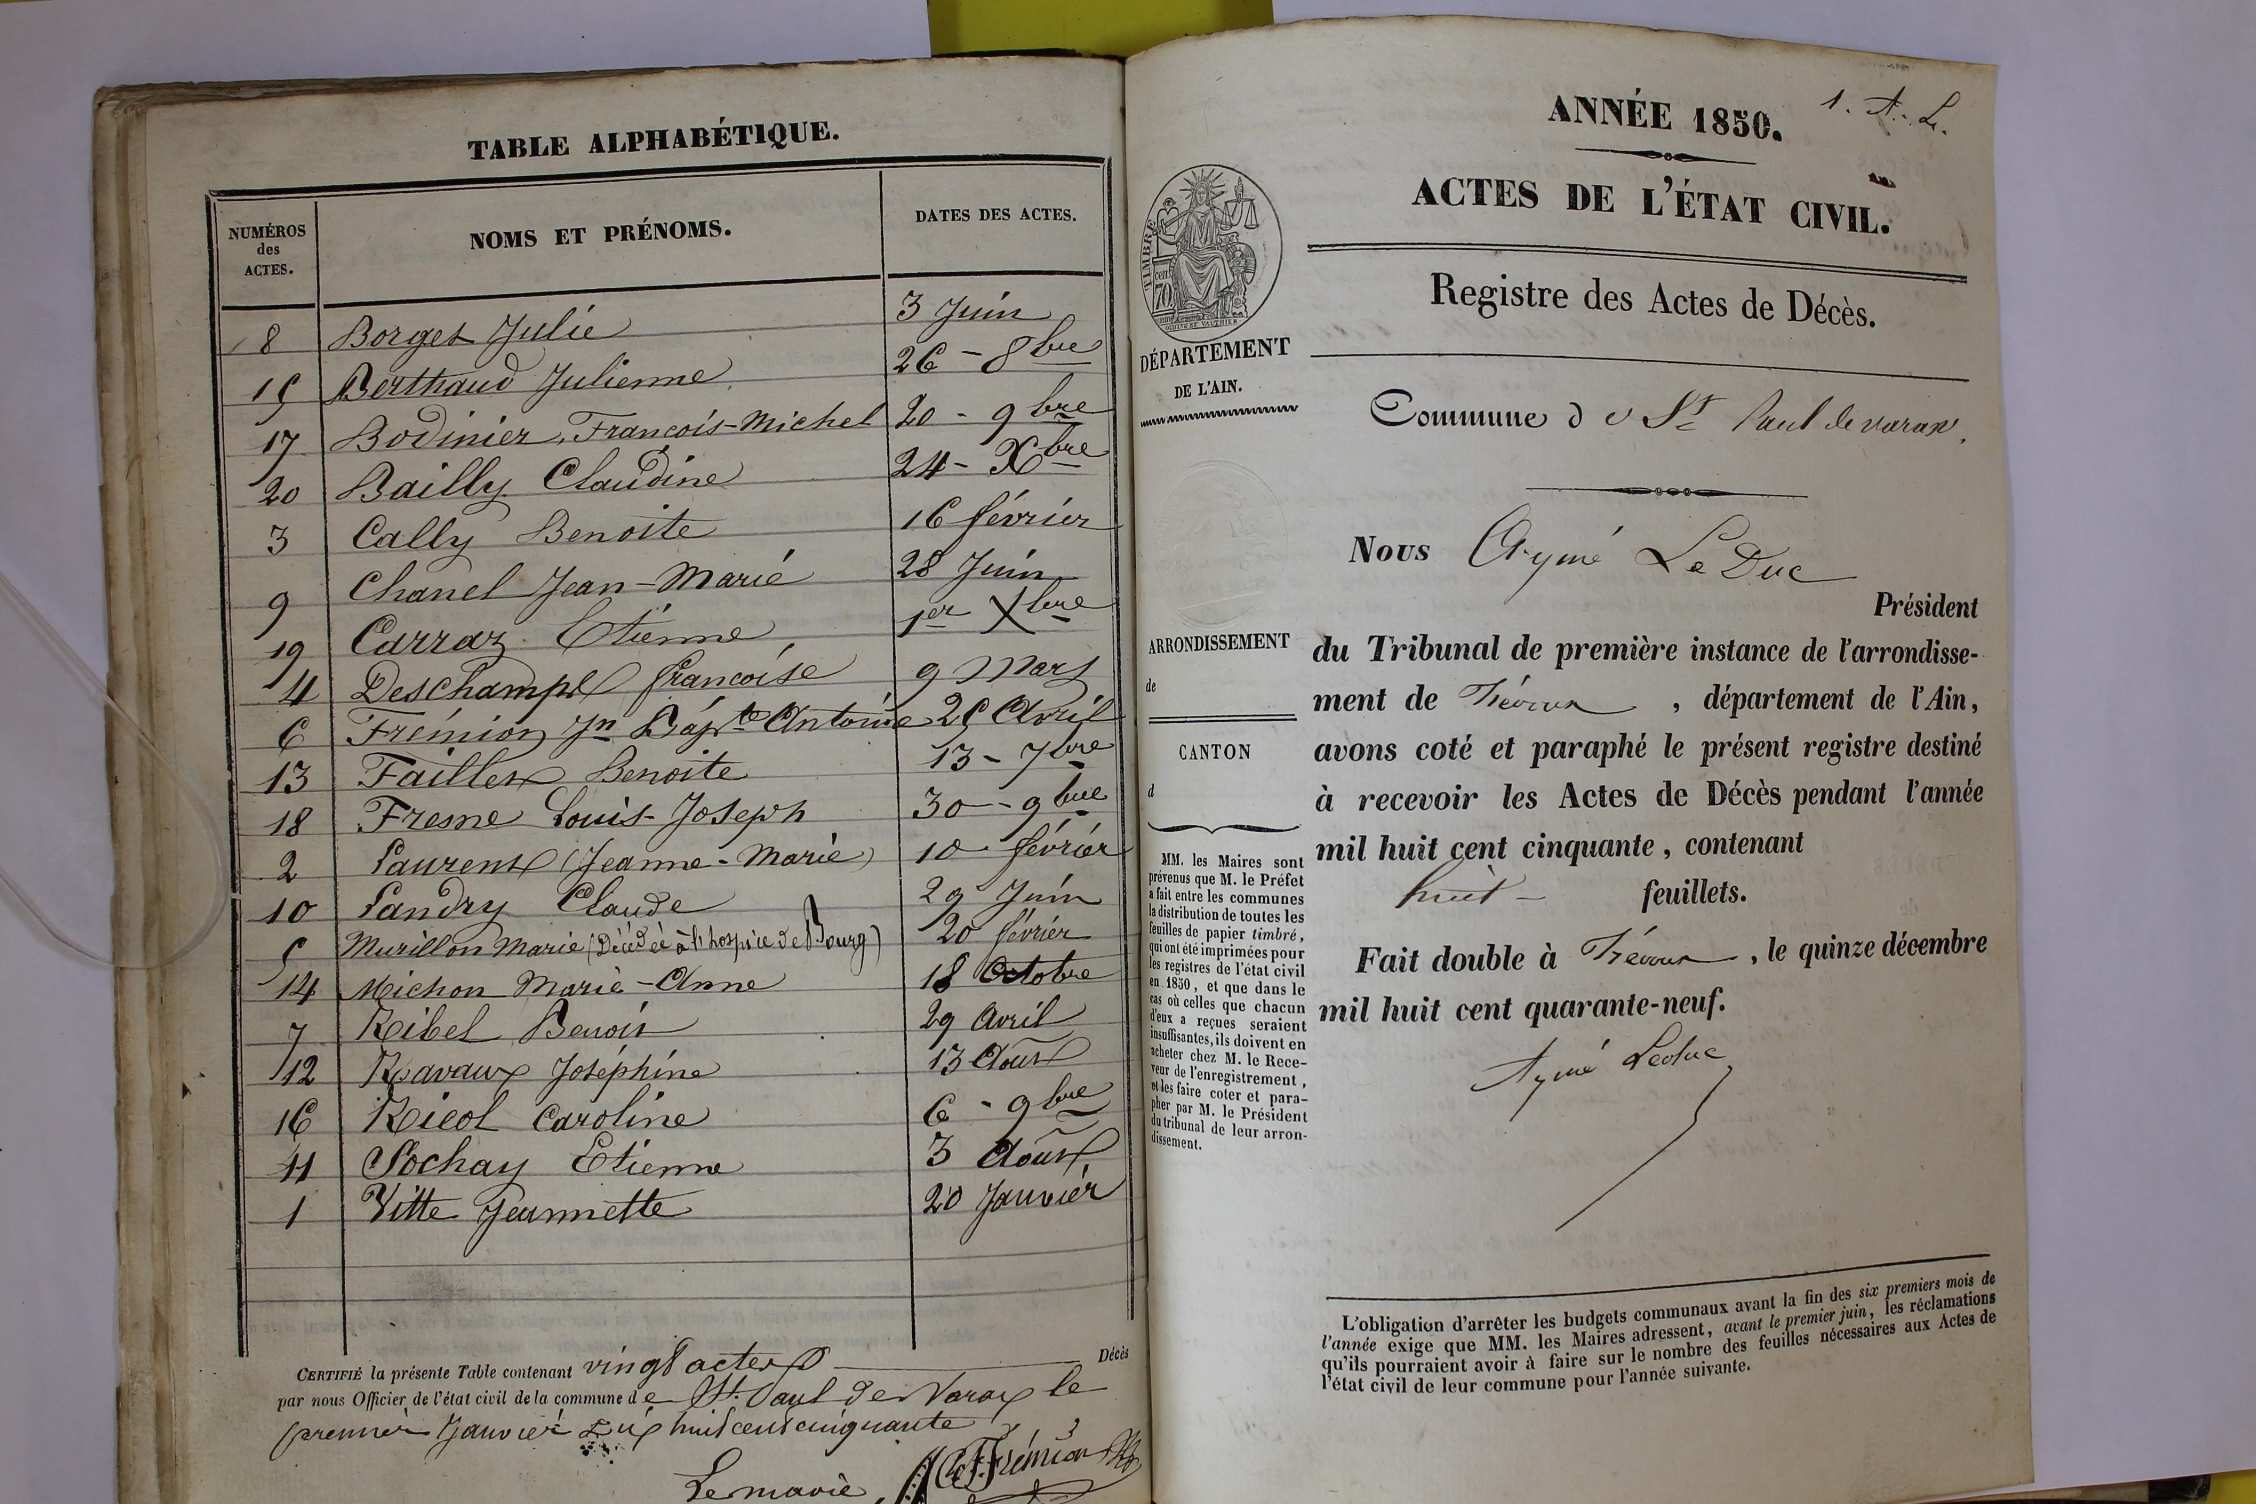 TABLE ALPHABÉTIQUE.
NUMÉROS des ACTES. NOMS ET PRÉNOMS. DATES DES ACTES.
8 Borget Julie 3 Juin
15 Berthaud Julienne 26 - 8bre
17 Bodinier, François-Michel 20 - 9bre
20 Bailly Claudine 24 - Xbre
3 Cally Benoite 16 février
9 Chanel Jean-Marie 28 Juin
19 Carraz Etienne 1er Xbre
4 Deschamps francoise 9 Mars
6 Frémion Jn Bapte Antoine 25 Avril
13 Faillet Benoite 13 - 7bre
18 Fresne Louis-Joseph 30 - 9bre
2 Laurent (Jeanne-Marie) 10 février
10 Landry Claude 29 Juin
5 Murillon Marie (Décédée à l'hospice de Bourg) 20 février
14 Michon Marie-Anne 18 Octobre
7 Ribel Benoit 29 Avril
12 Ravaux Joséphine 13 Août
16 Ricol Caroline 6 - 9bre
11 Sochay Etienne 3 Août
1 Vitte Jeannette 20 Janvier
CERTIFIÉ la présente Table contenant vingt actes Décès
par nous Officier de l'état civil de la commune de St. Paul de Varax le
premier Janvier mil huit cent cinquante
Le maire, Frémion
1. A. L.
ANNÉE 1850.
ACTES DE L'ÉTAT CIVIL.
Registre des Actes de Décès.
TIMBRE
cen
70
DÉPARTEMENT
DE L'AIN.
Commune de St Paul de varax.
Nous Aymé Le Duc
Président
du Tribunal de première instance de l'arrondisse-
ment de Trévoux , département de l'Ain,
avons coté et paraphé le présent registre destiné
à recevoir les Actes de Décès pendant l'année
mil huit cent cinquante , contenant
huit - feuillets.
Fait double à Trévoux , le quinze décembre
mil huit cent quarante-neuf.
Aymé Leduc
ARRONDISSEMENT
de
CANTON
d
MM. les Maires sont
prévenus que M. le Préfet
a fait entre les communes
la distribution de toutes les
feuilles de papier timbré,
qui ont été imprimées pour
les registres de l'état civil
en 1850, et que dans le
cas où celles que chacun
d'eux a reçues seraient
insuffisantes, ils doivent en
acheter chez M. le Rece-
veur de l'enregistrement,
et les faire coter et para-
pher par M. le Président
du tribunal de leur arron-
dissement.
L'obligation d'arrêter les budgets communaux avant la fin des six premiers mois de
l'année exige que MM. les Maires adressent, avant le premier juin, les réclamations
qu'ils pourraient avoir à faire sur le nombre des feuilles nécessaires aux Actes de
l'état civil de leur commune pour l'année suivante.